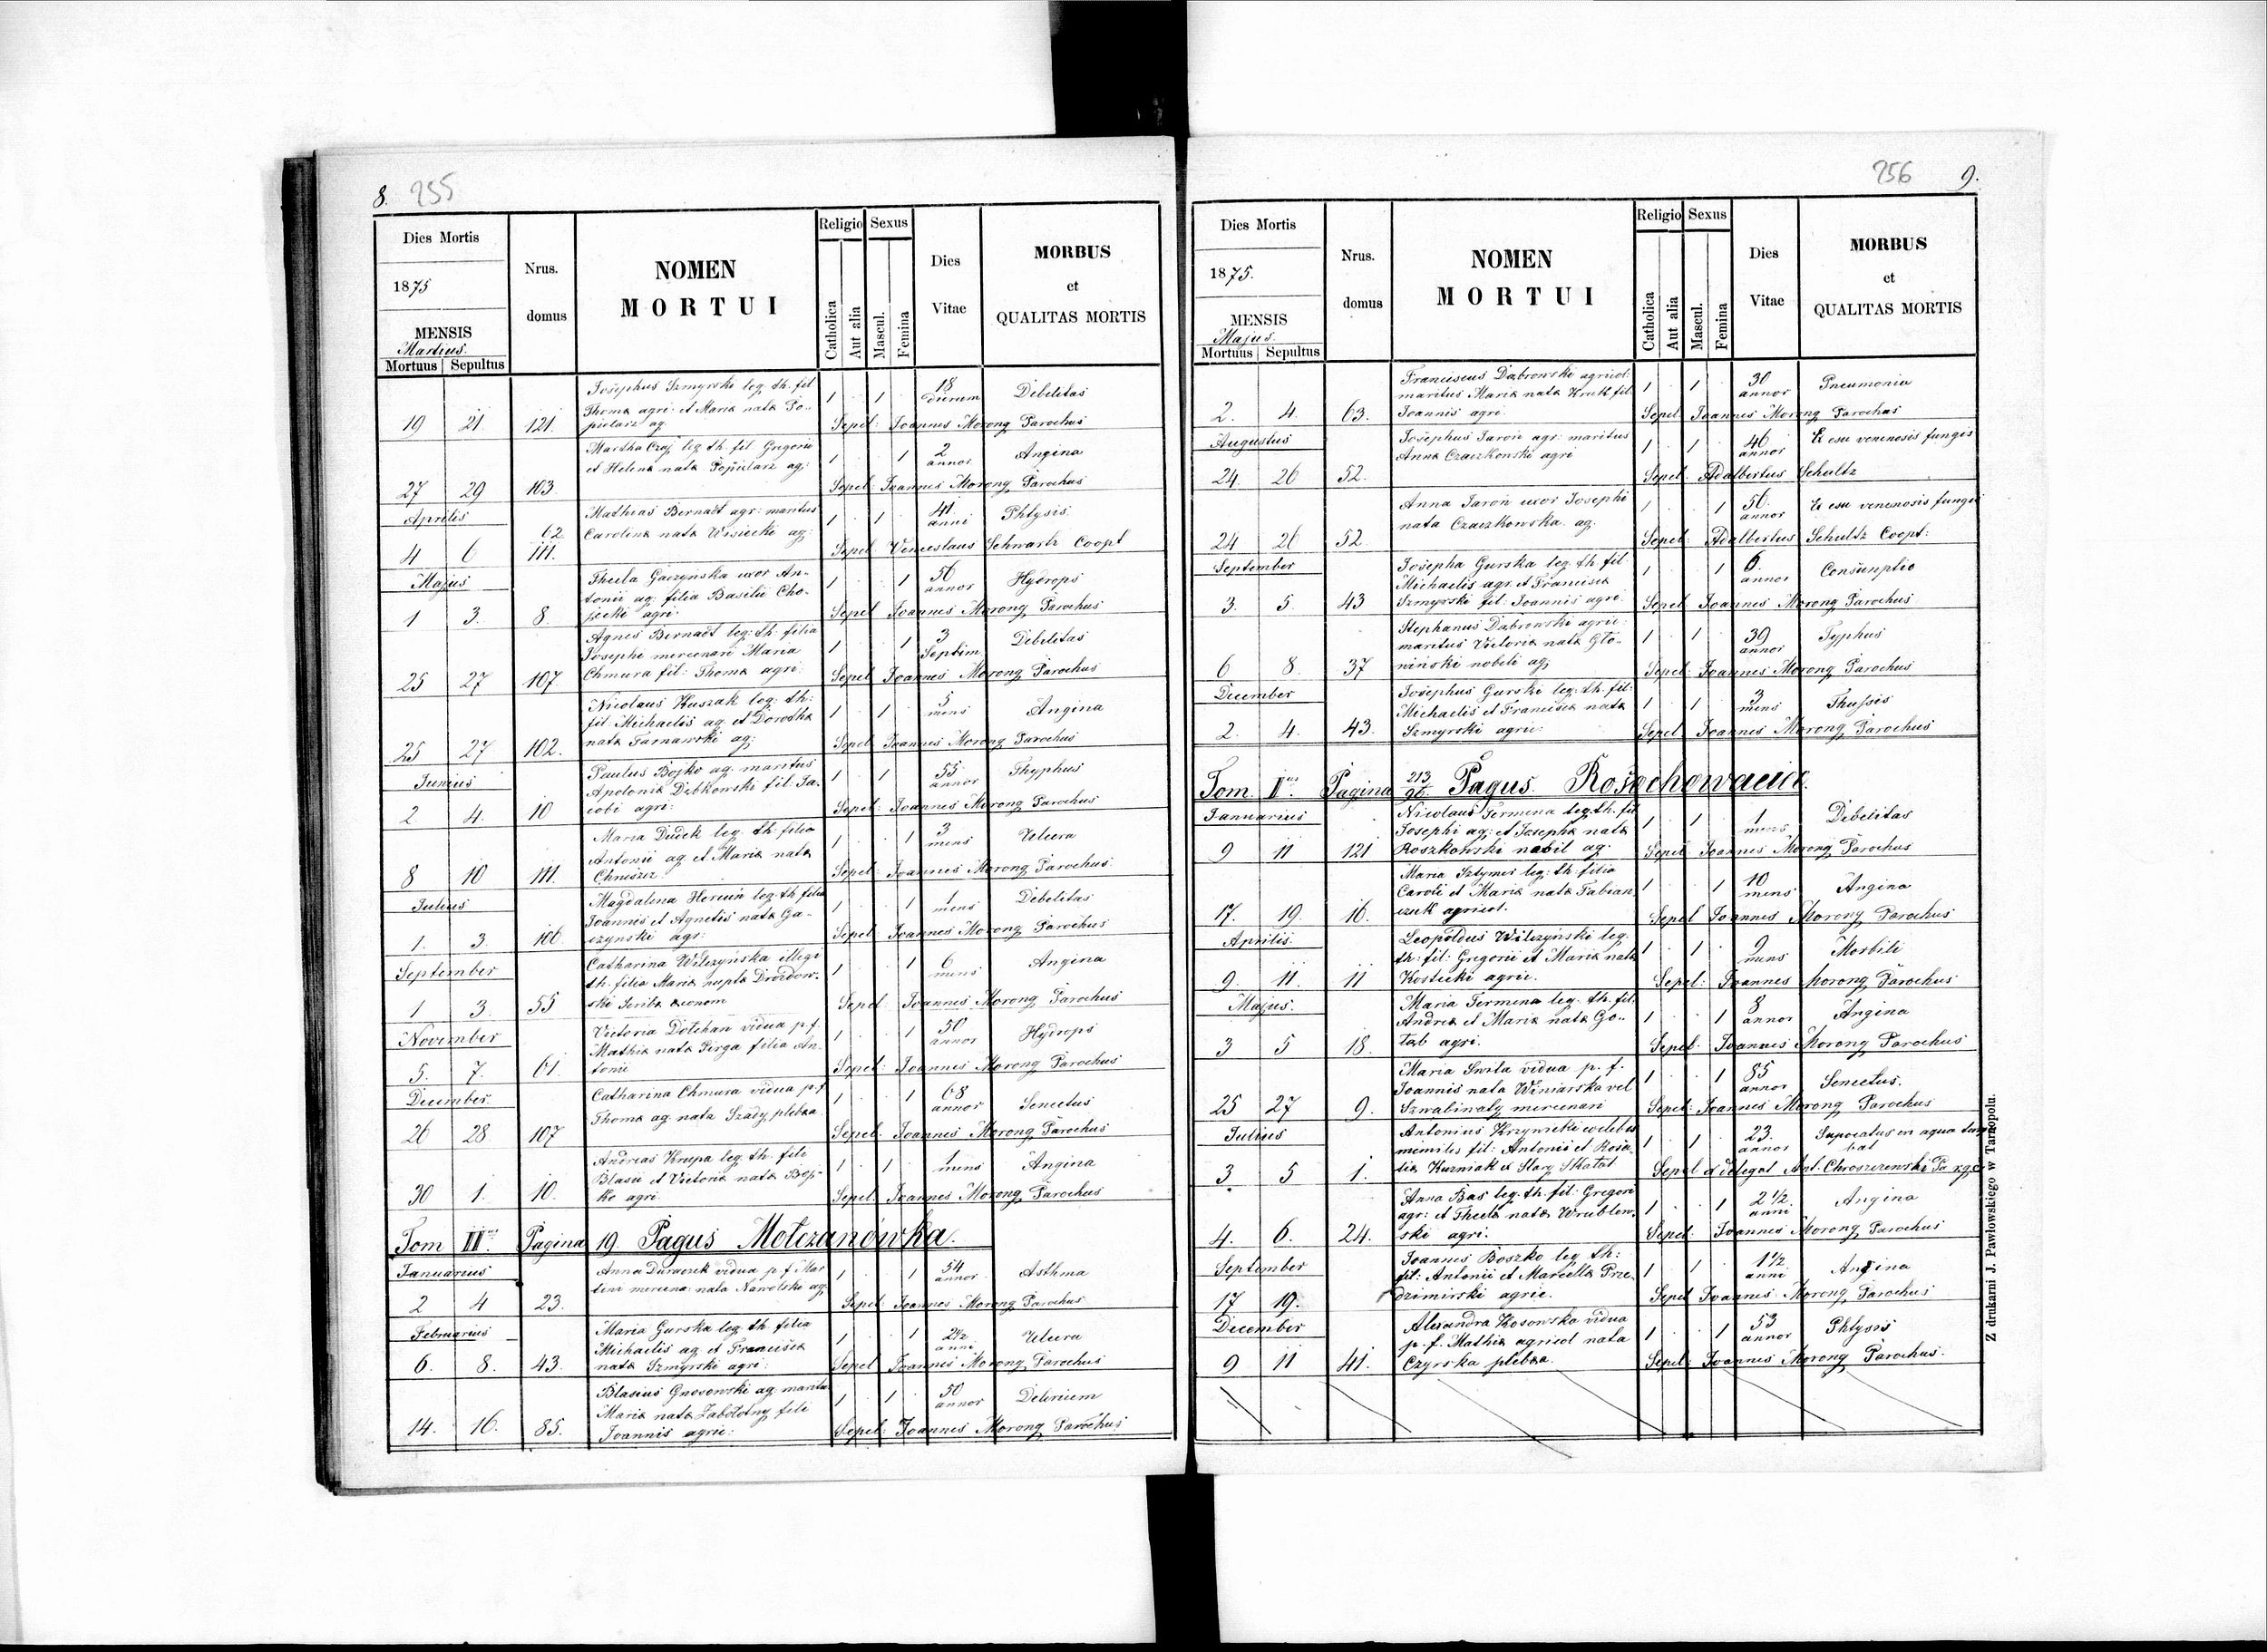 8. 255
Dies Mortis
1875
MENSIS
Martius.
Mortuus Sepultus
Nrus. domus
NOMEN MORTUI
Religio
Catholica
Aut alia
Sexus
Mascul.
Femina
Dies Vitae
MORBUS et QUALITAS MORTIS
Josephus Szmyrski leg. th. fil 1 1 18 dierum Debilitas
Thomæ agri. et Mariæ natæ Po-
19 21 121. pielarz ag. Sepel: Joannes Morong Parochus
Martha Czaj leg. th. fil. Gregorii 1 1 2 annor. Angina
et Helenæ natæ Popielarz ag:
27 29 103 Sepel: Joannes Morong Parochus
Aprilis
Mathias Bernadt agr: maritus 1 1 41. anni Phtysis.
62 Carolinæ natæ Ursiecki ag:
4 6 111. Sepel: Venceslaus Schwartz Coopt
Majus
Thecla Gaczynska uxor An- 1 1 56 annor Hydrops
tonii ag: filia Basilii Cho-
1 3. 8. jecki agri. Sepel Joannes Morong Parochus
Agnes Bernadt leg: th. filia 1 1 3 Septim. Debilitas
Josephi mercenari Maria
25 27 107. Chmura fil: Thomæ agri. Sepel Joannes Morong Parochus
Nicolaus Kuszak leg: th: 1 1 5 mens Angina
fil. Michaelis ag. et Dorothæ
25 27 102. natæ Tarnawski ag: Sepel Joannes Morong Parochus
Junius
Paulus Bojko ag. maritus 1 1 55 annor Thyphus
Apoloniæ Dębkowski fil: Ja-
2 4. 10 cobi agri: Sepel: Joannes Morong Parochus
Maria Dudek leg. th. filia 1 1 3 mens Ulcera
Antonii ag. et Mariæ natæ
8 10 111. Chruszcz Sepel: Joannes Morong Parochus
Julius
Magdalena Hercuń leg: th filia 1 1 1 mens Debilitas
Joannis et Agnetis natæ Ga-
1. 3. 106. czynski agr: Sepel: Joannes Morong Parochus
September
Catharina Wilczyńska illegi 1 1 6 mens Angina
th. filia Mariæ nuptæ Drozdow-
1 3. 55 ski Scribæ æconom Sepel: Joannes Morong Parochus
November
Victoria Dołchan vidua p. f. 1 1 50 annor Hydrops
Mathiæ nata Pirga filia An-
5. 7. 61. tonii Sepel: Joannes Morong Parochus
December
Catharina Chmura vidua p. f 1 1 68 annor Senectus
Thomæ ag. nata Szady plebæa
26 28 107 Sepel: Joannes Morong Parochus
Andreas Krupa leg. th. fili 1 1 1 mens Angina
Blasii et Victoriæ natæ Boj-
30 1. 10. ko agri. Sepel: Joannes Morong Parochus
Tom II us. Pagina 19. Pagus Mołczanówka.
Januarius
Anna Duraczek vidua p. f. Mar 1 1 54 annor. Asthma
tini mercena: nata Nawolski ag.
2 4 23. Sepel: Joannes Morong Parochus
Februarius
Maria Gurska leg. th. filia 1 1 2½ anni Ulcera
Michaelis ag. et Franciscæ
6. 8. 43. natæ Szmyrski agri: Sepel Joannes Morong Parochus
Blasius Gnosowski ag: maritus 1 1 50 annor Delirium
Mariæ natæ Zabołotny fili
14. 16. 85. Joannis agric: Sepel: Joannes Morong Parochus
256 9.
Dies Mortis
1875.
MENSIS
Majus.
Mortuus Sepultus
Nrus. domus
NOMEN MORTUI
Religio
Catholica
Aut alia
Sexus
Mascul.
Femina
Dies Vitae
MORBUS et QUALITAS MORTIS
Franciscus Dąbrowski agricol: 1 1 30 annor Pneumonia
maritus Mariæ natæ Kruk fil.
2. 4. 63. Joannis agri. Sepel: Joannes Morong Parochus
Augustus
Josephus Jaroń agr: maritus 1 1 46 annor Ex esu venenosis fungis
Annæ Czaczkowski agri
24. 26 52. Sepel: Adalbertus Schultz
Anna Jaroń uxor Josephi 1 1 50. annor Ex esu venenosis fungis
nata Czaczkowska. ag.
24 26 52 Sepel: Adalbertus Schultz Coopt:
September
Josepha Gurska leg. th. fil. 1 1 6. annor Consumptio
Michaelis agr. et Franciscæ
3. 5. 43 Szmyrski fil: Joannis agri. Sepel: Joannes Morong Parochus
Stephanus Dąbrowski agric: 1 1 39 annor Typhus
maritus Victoriæ natæ Gło-
6 8. 37 niński nobili ag. Sepel: Joannes Morong Parochus
December
Josephus Gurski leg: th. fil: 1 1 3 mens Thussis
Michaelis et Franciscæ natæ
2. 4. 43. Szmyrski agric: Sepel Joannes Morong Parochus
Tom II us. Pagina 213 Pagus Rosochowaciec.
Januarius
Nicolaus Termena leg. th. fil 1 1 1 mens Debilitas
Josephi ag: et Josephæ natæ
9 11 121 Roszkowski nobil ag. Sepel Joannes Morong Parochus
Maria Sztymer leg: th. filia 1 1 10 mens Angina
Caroli et Mariæ natæ Fabian
17. 19. 16. czuk agricol. Sepel Joannes Morong Parochus
Aprilis.
Leopoldus Wilczyński leg. 1 1 9 mens Morbili
th: fil: Gregorii et Mariæ natæ
9. 11. 11 Kostecki agric. Sepel: Joannes Morong Parochus
Majus.
Maria Termena leg. th. fil. 1 1 8 annor Angina
Andreæ et Mariæ natæ Go-
3 5 18. łąb agri. Sepel: Joannes Morong Parochus
Maria Swita vidua p. f. 1 1 85 annor Senectus.
Joannis nata Winiarska vel
25 27 9. Szwabinaly mercenari Sepel: Joannes Morong Parochus
Julius
Antonius Krzywicki 1 1 23. annor in aqua
fil: Antonii et Rosa-
3 5 1. liæ Kuzniak Stary Skałat Sepel Chroszczewski
Anna Bas leg. th. fil: Gregori 1 1 2½ anni Angina
agr: et Theclæ natæ Wrublew-
4. 6. 24. ski agri. Sepel: Joannes Morong Parochus
September
Joannes Boszko leg. th: 1 1 1½ anni Angina
fil: Antonii et Marcellæ Prze-
17 19. dzimirski agric. Sepel Joannes Morong Parochus
December
Alexandra Kosowska vidua 1 1 53 annor Phtysis
p. f. Mathiæ agricol nata
9 11 41. Czyrska plebæa. Sepel: Joannes Morong Parochus.
Z drukarni J. Pawłowskiego w Tarnopolu.